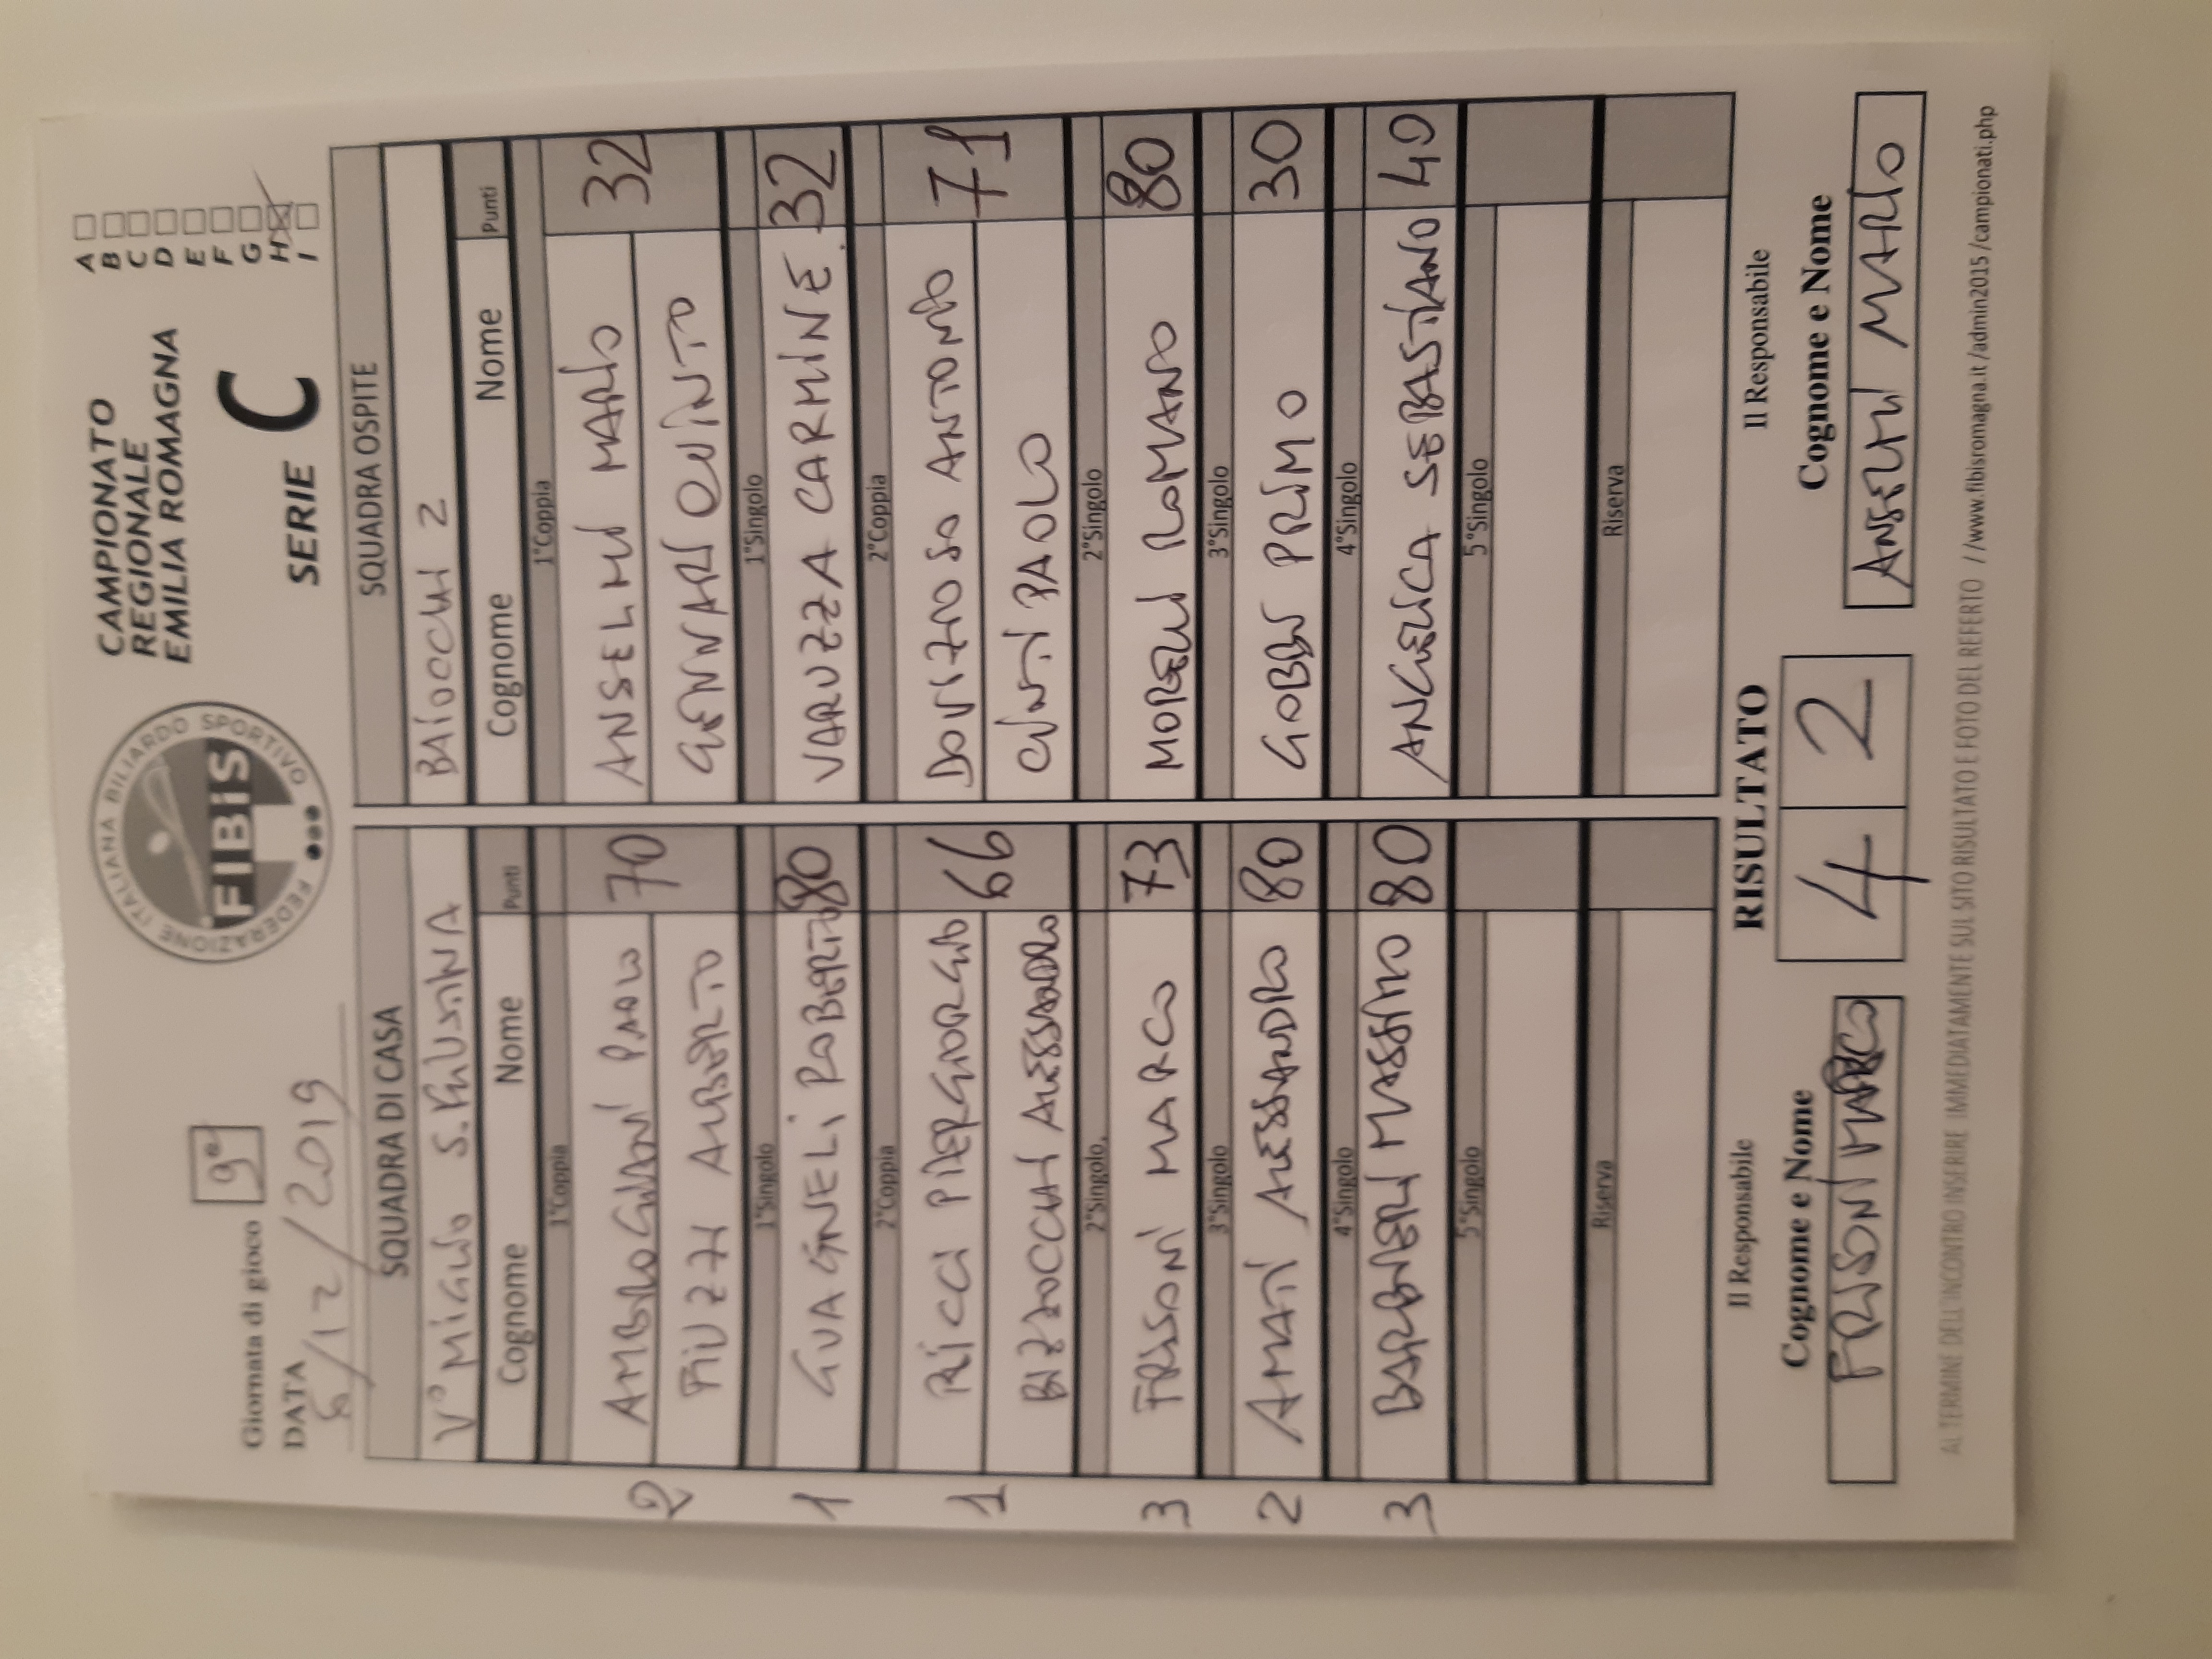 Giornata di gioco 9ª
DATA
5/12/2019
FEDERAZIONE ITALIANA BILIARDO SPORTIVO
FIBiS
CAMPIONATO
REGIONALE
EMILIA ROMAGNA
SERIE C
A
B
C
D
E
F
G
H
I
SQUADRA DI CASA
Vº MIGLIO S.FAUSTINA
Cognome Nome Punti
1°Coppia
AMBROGIANI PAOLO 70
FIUZZI ALBERTO
1°Singolo
GUAGNELI ROBERTO 80
2°Coppia
RICCI PIERGIORGIO 66
BIZZOCCHI ALESSANDRO
2°Singolo.
FRISONI MARCO 73
3°Singolo
AMATI ALESSANDRO 80
4°Singolo
BARBIERI MASSIMO 80
5°Singolo
Riserva
2
1
1
3
2
3
SQUADRA OSPITE
BAIOCCHI 2
Cognome Nome Punti
1°Coppia
ANSELMI MARIO 32
GENNARI QUINTO
1°Singolo
VARUZZA CARMINE 32
2°Coppia
DOVIZIOSO ANTONIO 71
CONTI PAOLO
2°Singolo
MORELLI ROMANO 80
3°Singolo
GOBBI PRIMO 30
4°Singolo
ANGELICA SEBASTIANO 40
5°Singolo
Riserva
Il Responsabile
Cognome e Nome
FRISONI MARCO
RISULTATO
4 2
Il Responsabile
Cognome e Nome
ANSELMI MARIO
AL TERMINE DELL'INCONTRO INSERIRE IMMEDIATAMENTE SUL SITO RISULTATO E FOTO DEL REFERTO //www.fibisromagna.it/admin2015/campionati.php